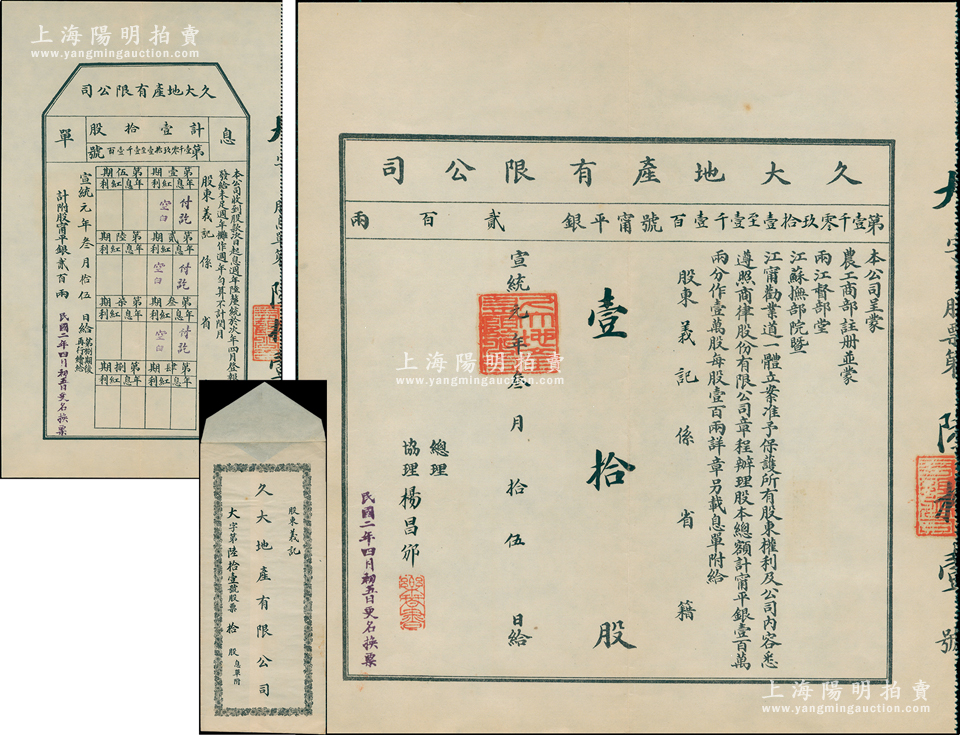 上海陽明拍賣
www.yangmingauction.com
久大地產有限公司
計壹拾股
息
單
第壹千零玖拾壹至壹千壹百號
本公司收到股款次日起息週年陸釐統於次年四月登報
發給未足週年攤作週年勻算不計閏月
股東義記係 省
第壹期
年息紅利
付訖
空白
第貳期
年息紅利
付訖
空白
第叁期
年息紅利
付訖
空白
第肆期
年息紅利
第伍期
年息紅利
第陸期
年息紅利
第柒期
年息紅利
第捌期
年息紅利
宣統元年叁月拾伍日給
第捌期後再行續給
計附股甯平銀貳百兩
民國二年四月初五日更名換票
久大地產有限公司
第壹千零玖拾壹至壹千壹百號甯平銀 貳百兩
本公司呈蒙
農工商部註册並蒙
兩江督部堂
江蘇撫部院暨
江甯勸業道一體立案准予保護所有股東權利及公司內容悉
遵照商律股份有限公司章程辦理股本總額計甯平銀壹百萬
兩分作壹萬股每股壹百兩詳章另載息單附給
股東義記係 省 籍
壹拾股
宣統元年叁月拾伍日給
總理
協理楊昌邠
民國二年四月初五日更名換票
股票第陸拾壹號
股東義記
久大地產有限公司
大字第陸拾壹號股票拾股息單附
上海陽明拍賣
www.yangmingauction.com
上海陽明拍賣
www.yangmingauction.com